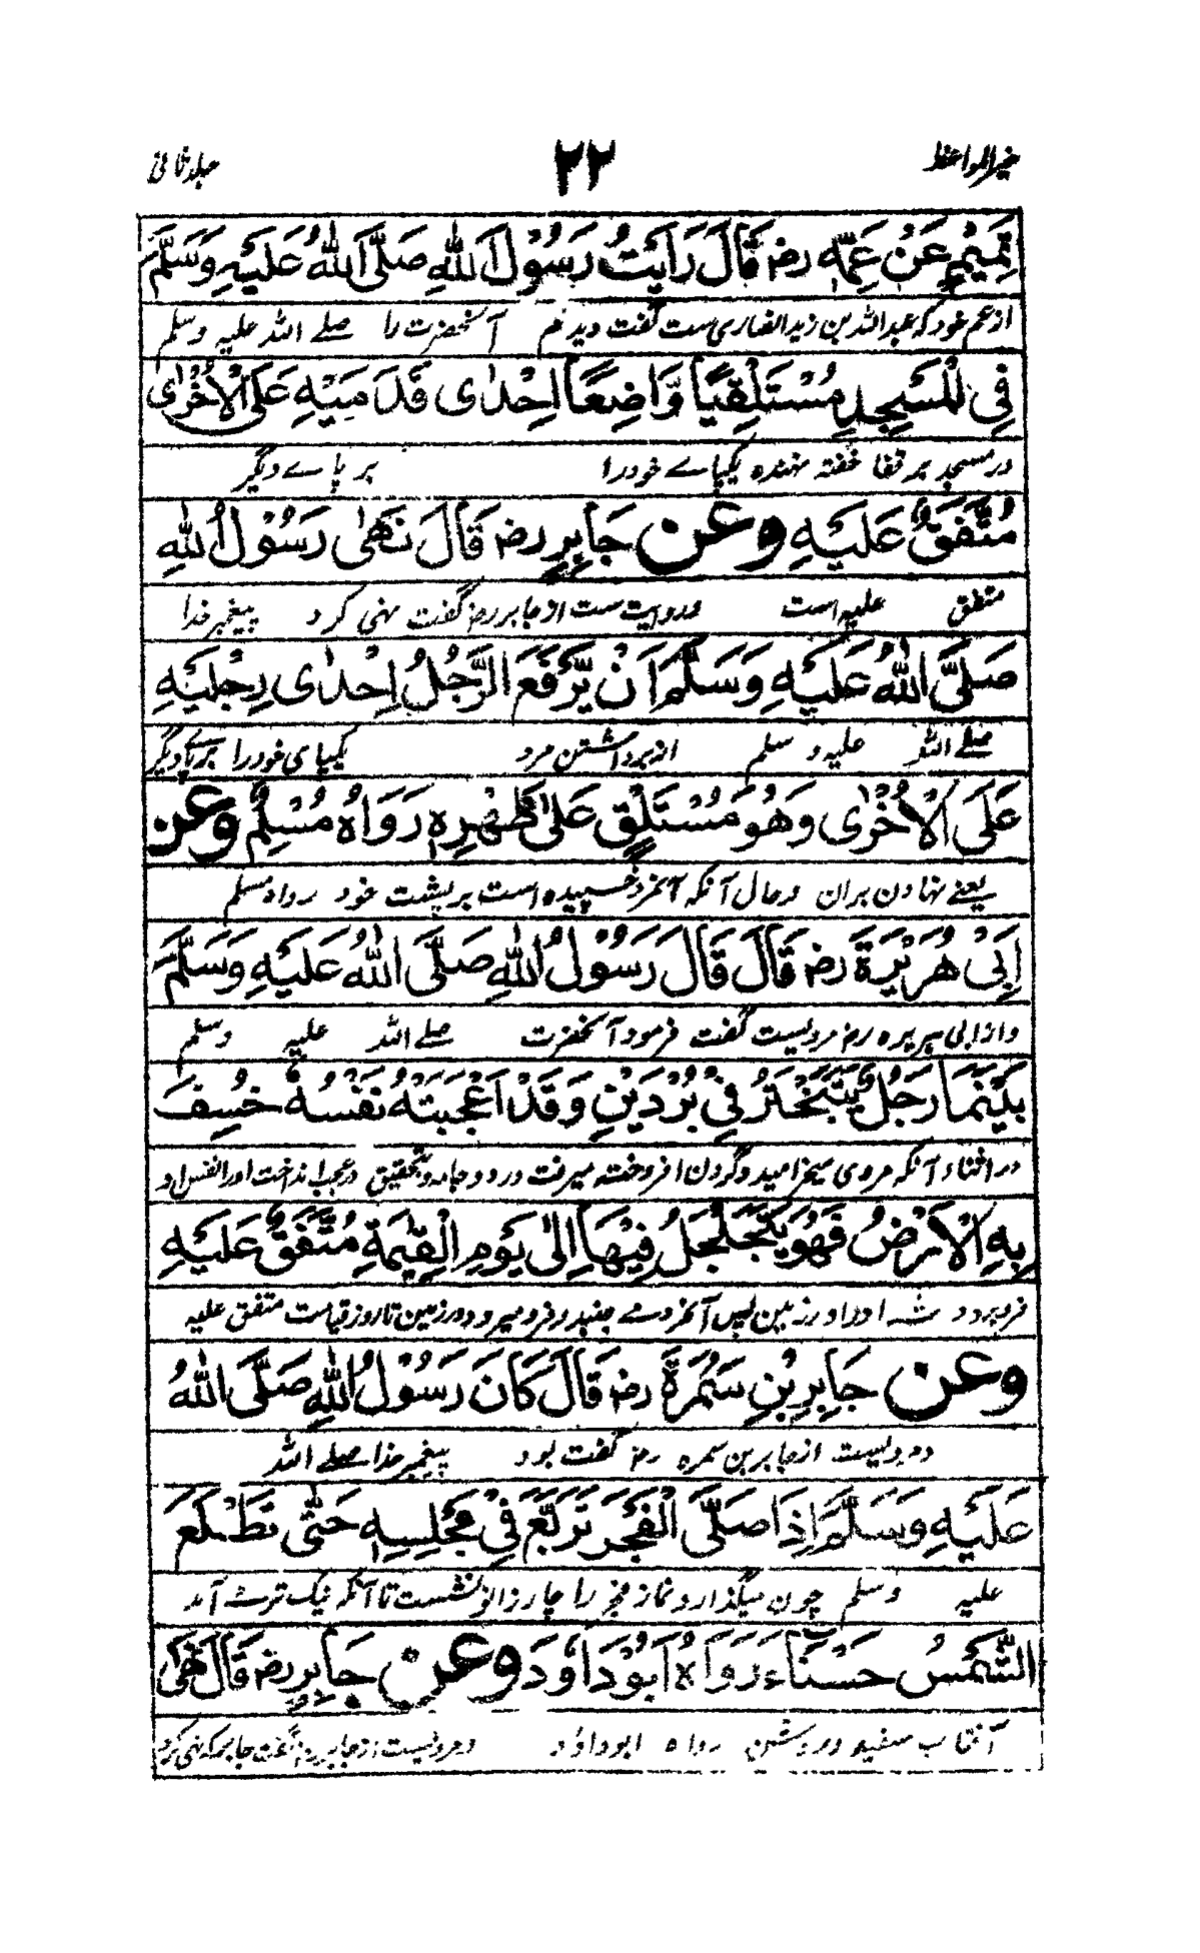 خیر المواعظ ۲۲ جلد ثانی
تَمِيْمٍ عَنْ عَمِّهٖ رضہ قَالَ رَاَيْتُ رَسُوْلَ اللّٰهِ صَلَّى اللّٰهُ عَلَيْهِ وَسَلَّمَ
از عم خود که عبد الله بن زید انصاری ست گفت دیدم آنحضرت را صلے الله علیه وسلم
فِي الْمَسْجِدِ مُسْتَلْقِيًا وَّاضِعًا اِحْدٰى قَدَمَيْهِ عَلَى الْاُخْرٰى
در مسجد بر قفا خفته نهنده یکپاے خود را بر پاے دیگر
مُتَّفَقٌ عَلَيْهِ وعن جَابِرٍ رضہ قَالَ نَهٰى رَسُوْلُ اللّٰهِ
متفق علیه است و روایت ست از جابر رضہ گفت نهی کرد پیغمبر خدا
صَلَّى اللّٰهُ عَلَيْهِ وَسَلَّمَ اَنْ يَّرْفَعَ الرَّجُلُ اِحْدٰى رِجْلَيْهِ
صلے الله علیه و سلم از برداشتن مرد یکپای خود را بر پاے دیگر
عَلَى الْاُخْرٰى وَهُوَ مُسْتَلْقٍ عَلٰى ظَهْرِهٖ رَوَاهُ مُسْلِمٌ وعن
یعنے نهادن بران و حال آنکه آنمرد خسپیده است بر پشت خود رواه مسلم
اَبِيْ هُرَيْرَةَ رضہ قَالَ قَالَ رَسُوْلُ اللّٰهِ صَلَّى اللّٰهُ عَلَيْهِ وَسَلَّمَ
و از ابی هریره رضہ مرویست گفت فرمود آنحضرت صلے الله علیه وسلم
بَيْنَمَا رَجُلٌ يَّتَبَخْتَرُ فِيْ بُرْدَيْنِ وَقَدْ اَعْجَبَتْهُ نَفْسُهٗ خُسِفَ
در اثناء آنکه مردی میخرامید و گردن افروخته میرفت در دو جامه و بتحقیق در عجب انداخت او را نفس او
بِهِ الْاَرْضُ فَهُوَ يَتَجَلْجَلُ فِيْهَا اِلٰى يَوْمِ الْقِيٰمَةِ مُتَّفَقٌ عَلَيْهِ
فرو برده شد او را در زمین پس آنمرد مے جنبد و فرو میرود در زمین تا روز قیامت متفق علیه
وعن جَابِرِ بْنِ سَمُرَةَ رضہ قَالَ كَانَ رَسُوْلُ اللّٰهِ صَلَّى اللّٰهُ
و مرویست از جابر بن سمره رضہ گفت بود پیغمبر خدا صلے الله
عَلَيْهِ وَسَلَّمَ اِذَا صَلَّى الْفَجْرَ تَرَبَّعَ فِيْ مَجْلِسِهٖ حَتّٰى تَطْلُعَ
علیه وسلم چون میگذارد نماز فجر را چار زانو نشست تا آنکه نیک تر مے آمد
الشَّمْسُ حَسْنَآءَ رَوَاهُ اَبُوْدَاوٗدَ وعن جَابِرٍ رضہ قَالَ نَهٰى
آفتاب سفید و روشن رواه ابوداود و مرویست از جابر رضہ گفت جابر که نهی کرد